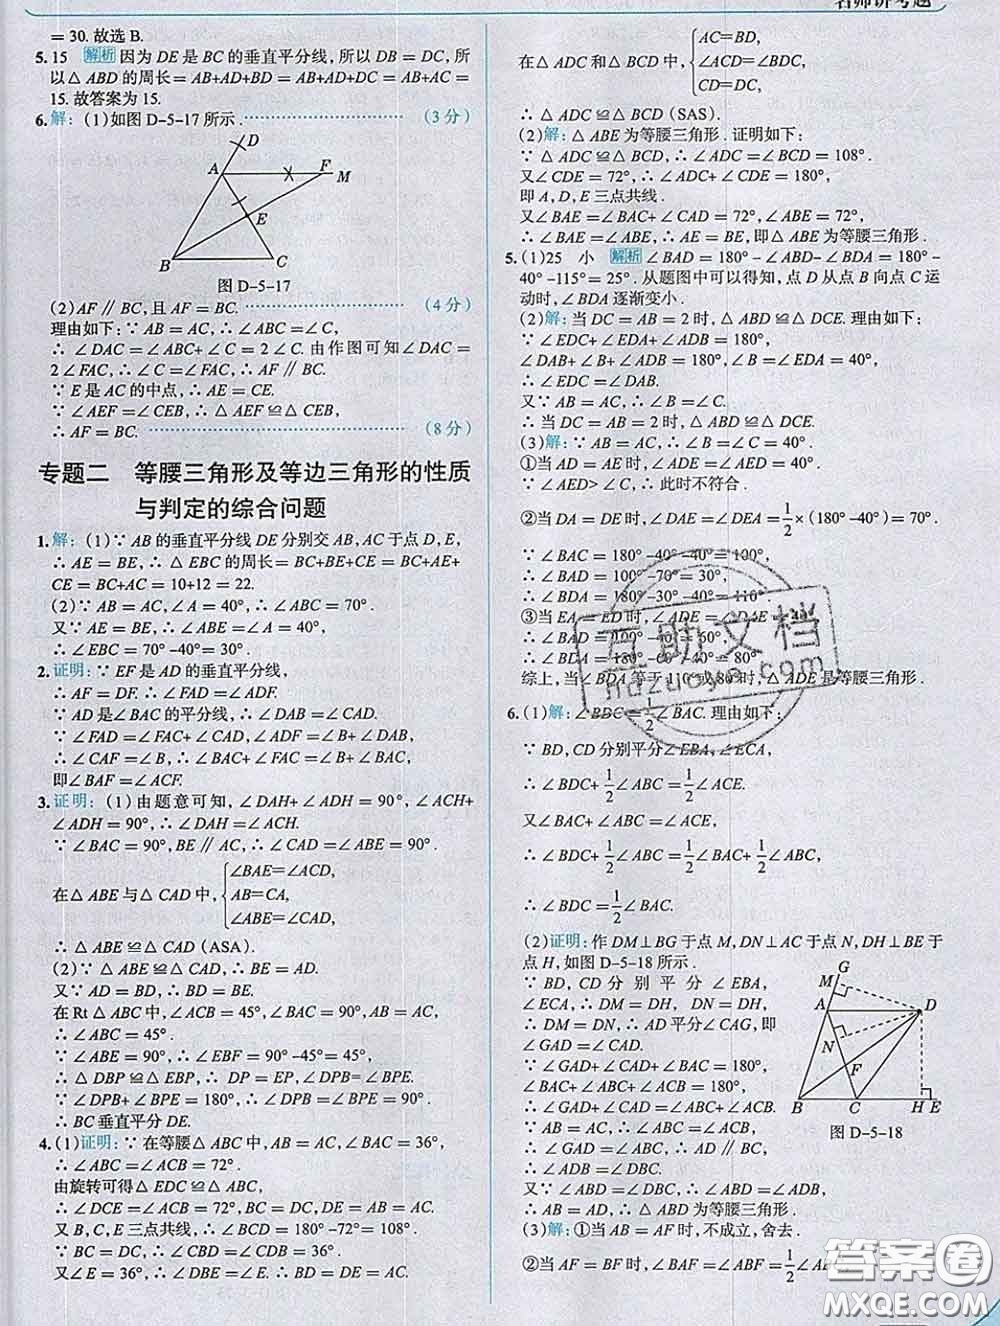 名师讲考题
= 30. 故选 B.
5. 15 解析 因为 DE 是 BC 的垂直平分线, 所以 DB = DC, 所
以△ABD 的周长= AB+AD+BD = AB+AD+DC = AB+AC =
15. 故答案为 15.
6. 解: (1)如图 D-5-17 所示. (3 分)
D
A F M
E
B C
图 D-5-17
(2)AF∥BC, 且 AF = BC. (4 分)
理由如下: ∵ AB = AC, ∴ ∠ABC=∠C.
∴ ∠DAC = ∠ABC+ ∠C = 2∠C. 由作图可知∠DAC =
2∠FAC, ∴ ∠C = ∠FAC, ∴ AF∥BC.
∵ E 是 AC 的中点, ∴ AE = CE.
∵ ∠AEF = ∠CEB, ∴ △AEF≌△CEB,
∴ AF = BC. (8 分)
专题二 等腰三角形及等边三角形的性质
与判定的综合问题
1. 解: (1)∵ AB 的垂直平分线 DE 分别交 AB, AC 于点 D, E,
∴ AE = BE, ∴ △EBC 的周长= BC+BE+CE = BC+AE+
CE = BC+AC = 10+12 = 22.
(2)∵ AB = AC, ∠A = 40°, ∴ ∠ABC = 70°.
又∵ AE = BE, ∴ ∠ABE = ∠A = 40°,
∴ ∠EBC = 70° -40° = 30°.
2. 证明: ∵ EF 是 AD 的垂直平分线,
∴ AF = DF. ∴ ∠FAD = ∠ADF.
∵ AD 是∠BAC 的平分线, ∴ ∠DAB = ∠CAD.
∵ ∠FAD = ∠FAC+ ∠CAD, ∠ADF = ∠B+ ∠DAB,
∴ ∠CAF = ∠B, ∴ ∠BAC+ ∠FAC = ∠B+ ∠BAC,
即∠BAF=∠ACF.
3. 证明: (1)由题意可知, ∠DAH+ ∠ADH = 90°, ∠ACH+
∠ADH = 90°, ∴ ∠DAH = ∠ACH.
∵ ∠BAC = 90°, BE∥AC, ∴ ∠CAD = ∠ABE = 90°.
在△ABE 与△CAD 中, {∠BAE=∠ACD,
AB=CA,
∠ABE=∠CAD,
∴ △ABE≌△CAD (ASA).
(2)∵ △ABE≌△CAD, ∴ BE = AD.
又∵ AD = BD, ∴ BD = BE.
在 Rt△ABC 中, ∠ACB = 45°, ∠BAC = 90°, AB = AC,
∴ ∠ABC = 45°.
∵ ∠ABE = 90°, ∴ ∠EBF = 90° -45° = 45°,
∴ △DBP≌△EBP, ∴ DP = EP, ∠DPB= ∠BPE.
∵ ∠DPB+ ∠BPE = 180°, ∴ ∠DPB = ∠BPE = 90°,
∴ BC 垂直平分 DE.
4. (1)证明: ∵ 在等腰△ABC 中, AB = AC, ∠BAC = 36°,
∴ ∠ABC = ∠ACB = 72°.
由旋转可得△EDC≌△ABC,
∴ ∠DCE = ∠ACB = 72°, BC = DC, ∠E = 36°.
又 B, C, E 三点共线, ∴ ∠BCD = 180° -72° = 108°.
∵ BC = DC, ∴ ∠CBD = ∠CDB = 36°.
又∠E = 36°, ∴ ∠DBE = ∠E. ∴ BD = DE = AC.
在△ADC 和△BCD 中, {AC=BD,
∠ACD=∠BDC,
CD=DC,
∴ △ADC≌△BCD (SAS).
(2)解: △ABE 为等腰三角形. 证明如下:
∵ △ADC≌△BCD, ∴ ∠ADC = ∠BCD = 108°.
又∠CDE = 72°, ∴ ∠ADC+ ∠CDE = 180°,
即 A, D, E 三点共线.
又∠BAE = ∠BAC+ ∠CAD = 72°, ∠ABE = 72°,
∴ ∠BAE = ∠ABE, ∴ AE = BE, 即△ABE 为等腰三角形.
5. (1)25 小 解析 ∠BAD = 180° - ∠ABD- ∠BDA = 180° -
40° -115° = 25°. 从题图中可以得知, 点 D 从点 B 向点 C 运
动时, ∠BDA 逐渐变小.
(2)解: 当 DC = AB = 2 时, △ABD≌△DCE. 理由如下:
∵ ∠EDC+ ∠EDA+ ∠ADB = 180°,
∠DAB+ ∠B+ ∠ADB = 180°, ∠B = ∠EDA = 40°,
∴ ∠EDC = ∠DAB.
又∵ AB = AC, ∴ ∠B = ∠C.
∴ 当 DC = AB = 2 时, △ABD≌△DCE.
(3)解: ∵ AB = AC, ∴ ∠B = ∠C = 40°.
①当 AD = AE 时, ∠ADE = ∠AED = 40°,
∵ ∠AED> ∠C, ∴ 此时不符合.
②当 DA = DE 时, ∠DAE = ∠DEA = 1/2 ×(180° -40°) = 70°.
∵ ∠BAC = 180° -40° -40° = 100°,
∴ ∠BAD = 100° -70° = 30°,
∴ ∠BDA = 180° -30° -40° = 110°
③当 EA = ED 时, ∠ADE = ∠DAE = 40°,
∴ ∠BAD = 100° -40° = 60°,
∴ ∠BDA = 180° -60° -40° = 80°
综上, 当∠BDA 等于 110° 或 80° 时, △ADE 是等腰三角形.
6. (1)解: ∠BDC = 1/2 ∠BAC. 理由如下:
∵ BD, CD 分别平分∠EBA, ∠ECA,
∴ ∠BDC+ 1/2 ∠ABC = 1/2 ∠ACE.
又∠BAC+ ∠ABC = ∠ACE,
∴ ∠BDC+ 1/2 ∠ABC = 1/2 ∠BAC+ 1/2 ∠ABC,
∴ ∠BDC = 1/2 ∠BAC.
(2)证明: 作 DM⊥BG 于点 M, DN⊥AC 于点 N, DH⊥BE 于
点 H, 如图 D-5-18 所示.
∵ BD, CD 分别平分∠EBA,
∠ECA, ∴ DM = DH, DN = DH,
∴ DM = DN, ∴ AD 平分∠CAG, 即
∠GAD = ∠CAD.
∵ ∠GAD+ ∠CAD+ ∠BAC = 180°,
∠BAC+ ∠ABC+ ∠ACB = 180°,
∴ ∠GAD+ ∠CAD = ∠ABC+ ∠ACB.
∵ AB = AC, ∴ ∠ABC = ∠ACB,
∴ ∠GAD = ∠ABC, ∴ AD∥BC,
∴ ∠ADB = ∠DBC.
又∵ ∠ABD = ∠DBC, ∴ ∠ABD = ∠ADB,
∴ AB = AD, ∴ △ABD 为等腰三角形.
G
M
A D
N
F
B C H E
图 D-5-18
(3)解: ①当 AB = AF 时, 不成立, 舍去.
②当 AF = BF 时, ∠BAF = ∠ABF = 1/2 ∠ABC
互助文档
huzuoye.com
答案圈
MXQE.COM